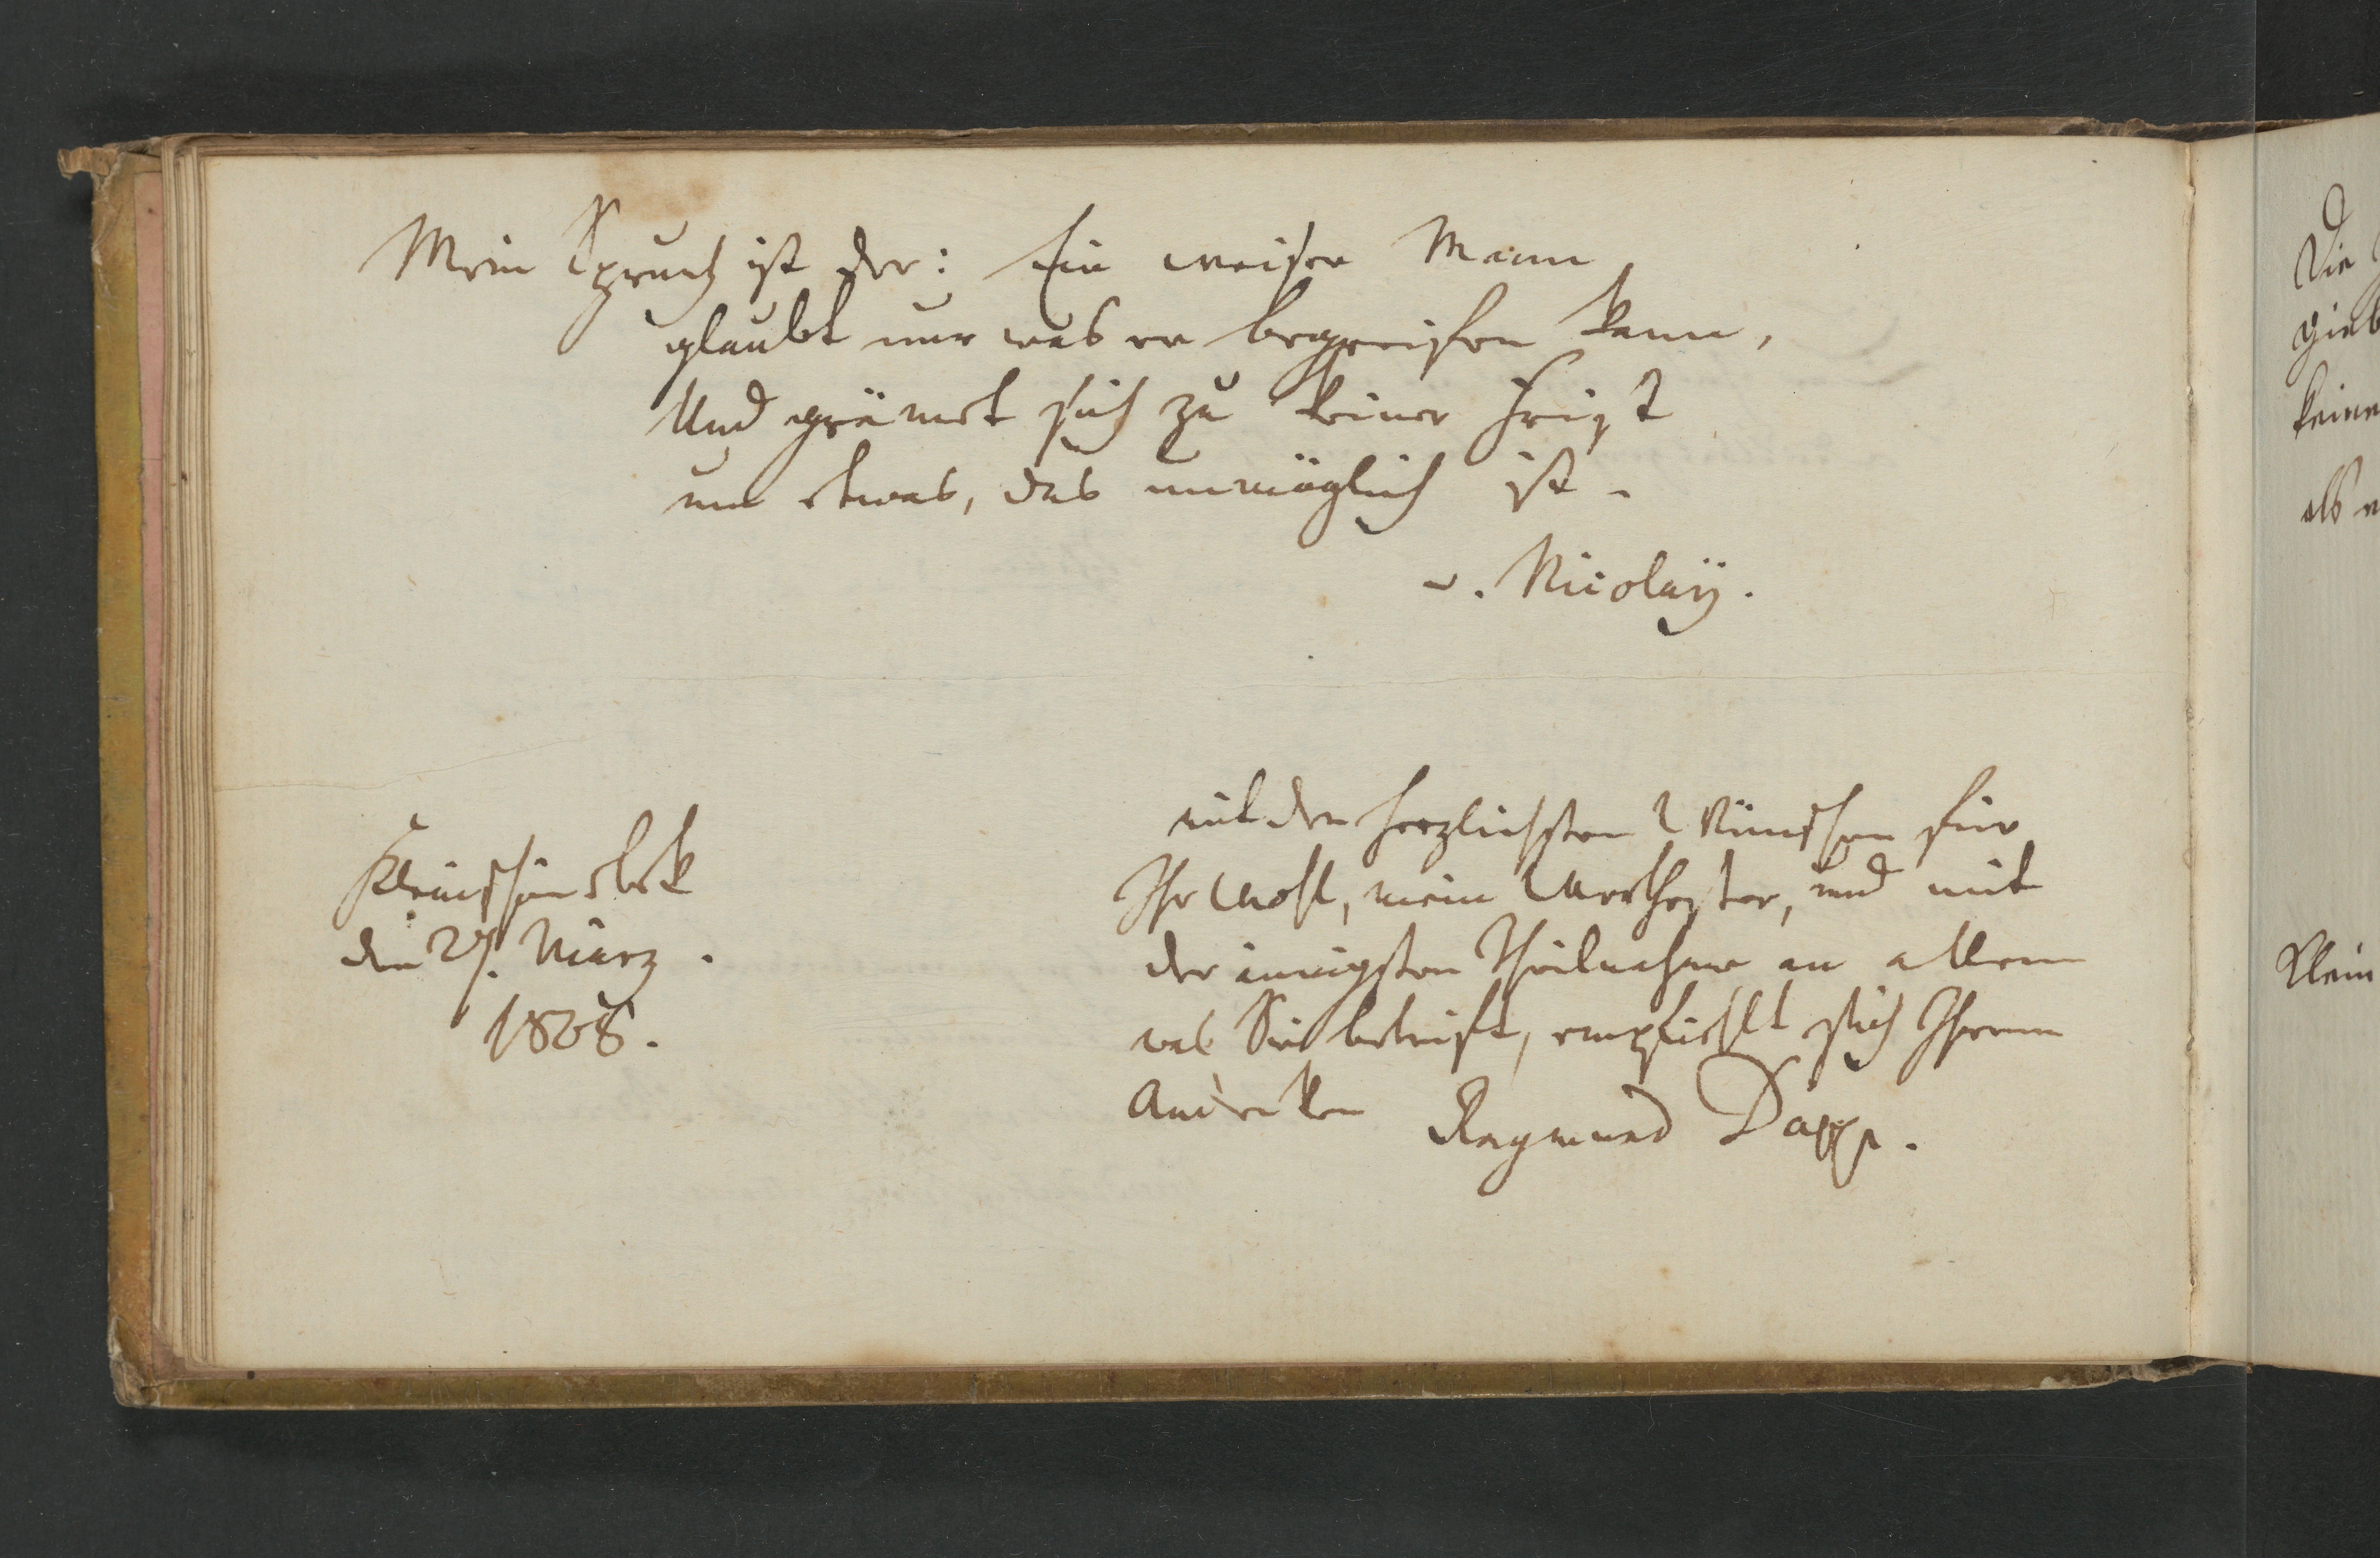 Mein Spruch ist der: Ein weiser Mann
glaubt nur was er begreifen kann,
Und grämet sich zu keiner Frist
um etwas, das unmöglich ist.
v. Nicolaÿ.
Kleinschönebek
den 27. März.
1808.
mit den herzlichsten Wünschen für
Ihr Wohl, mein Werthester, und mit
der innigsten Theilnahme an allem
was Sie betrift, empfiehlt sich Ihrem
Andenken Raymund Dapp.
Die
gieb
keine
als
Klein